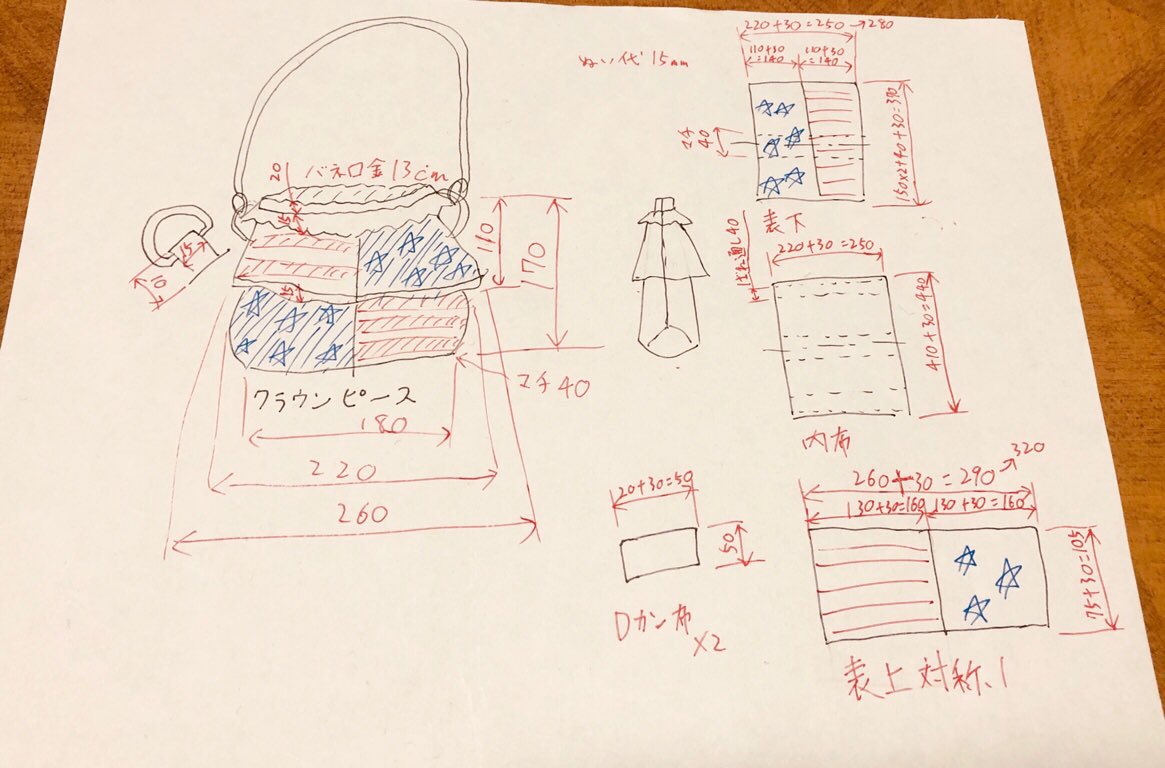 バネ口金13cm
20
15
15
10
15
110
170
マチ40
クラウンピース
180
220
260
ぬい代15mm
220+30=250→280
110+30
=140
110+30
=140
マチ
40
150×2+40+30=370
表下
220+30=250
ばね通し40
410+30=440
内布
20+30=50
50
Dカン布
×2
260+30=290→320
130+30=160
130+30=160
75+30=105
表上対称、1